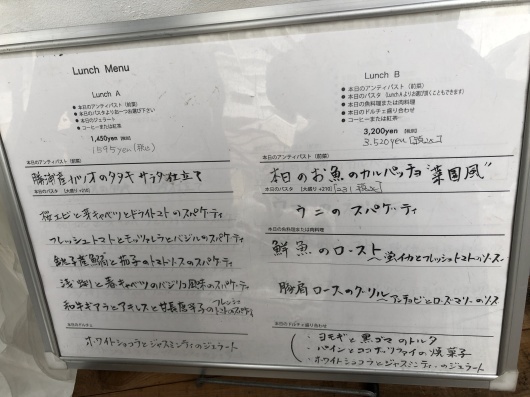 Lunch Menu
Lunch A
● 本日のアンティパスト（前菜）
● 本日のパスタより お一つお選び下さい
● 本日のジェラート
● コーヒーまたは紅茶
1,450yen（税込）
1595yen（税込）
本日のアンティパスト（前菜）
勝浦産カツオのタタキ サラダ仕立て
本日のパスタ 【大盛り +210】
桜エビと春キャベツとドライトマトのスパゲティ
フレッシュトマトとモッツァレラとバジルのスパゲティ
銚子産鰯と茄子のトマトソースのスパゲティ
浅蜊と春キャベツのバジリコ風味のスパゲティ
和牛ギアラとアキレスと甘長唐辛子のフレッシュトマトのスパゲティ
本日のドルチェ
ホワイトショコラとジャスミンティのジェラート
Lunch B
● 本日のアンティパスト（前菜）
● 本日のパスタ（Lunch Aよりお選び頂くこともできます）
● 本日の魚料理または肉料理
● 本日のドルチェ盛り合わせ
● コーヒーまたは紅茶
3,200yen（税込）
3.520yen（税込）
本日のアンティパスト（前菜）
本日のお魚のカルパッチョ"菜園風"
本日のパスタ 【大盛り +210】（231 税込）
ウニのスパゲティ
本日の魚料理または肉料理
鮮魚のロースト
〜蛍イカとフレッシュトマトのソース
豚肩ロースのグリル
〜アンチョビとローズマリーのソース
本日のドルチェ盛り合わせ
・ヨモギと黒ゴマのトルタ
・パインとココナッツファインの焼菓子
・ホワイトショコラとジャスミンティのジェラート